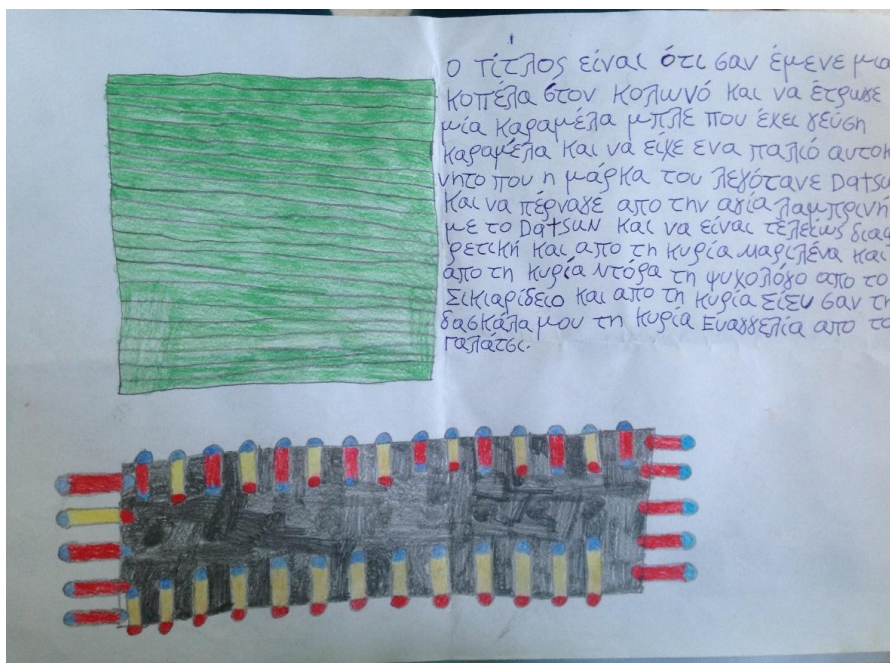 Ο τίτλος είναι ότι σαν έμενε μια
κοπέλα στον Κολωνό και να έτρωγε
μία καραμέλα μπλε που έχει γεύση
καραμέλα και να είχε ενα παλιό αυτοκ
νητο που η μάρκα του λεγότανε Datsun
και να πέρναγε απο την αγία λαμπρινή
με το Datsun και να είναι τελείως διαφ
ρετική και απο τη κυρία μαριλένα και
απο τη κυρία ντόρα τη ψυχολόγο απο το
Σικιαρίδειο και απο τη κυρία Σίσυ σαν τη
δασκάλα μου τη κυρία Ευαγγελία απο το
Γαλάτσι.